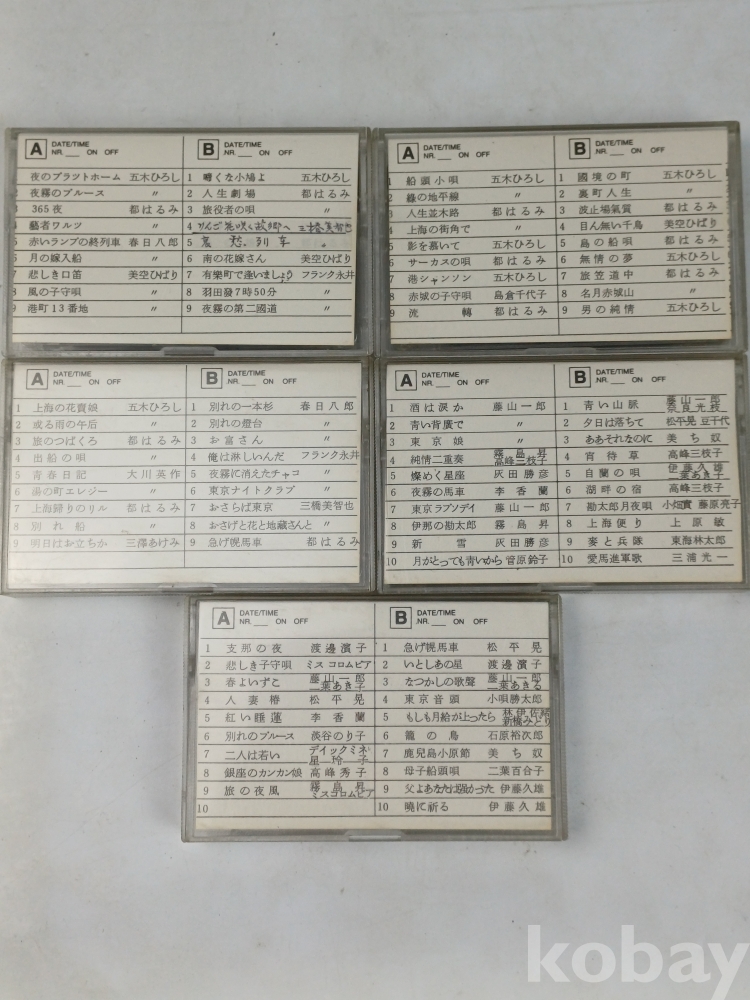 A DATE/TIME
NR.___ ON OFF
夜のプラットホーム 五木ひろし
2 夜霧のブルース 〃
365夜 都はるみ
藝者ワルツ 〃
5 赤いランプの終列車 春日八郎
6 月の嫁入船 〃
7 悲しき口笛 美空ひばり
8 風の子守唄 〃
9 港町13番地 〃
B DATE/TIME
NR.___ ON OFF
1 啼くな小鳩よ 五木ひろし
2 人生劇場 都はるみ
3 旅役者の唄 〃
4 りんご花咲く故郷へ 三橋美智也
5 哀愁列車 〃
6 南の花嫁さん 美空ひばり
7 有樂町で逢いましょう フランク永井
8 羽田發7時50分 〃
9 夜霧の第二國道 〃
A DATE/TIME
NR.___ ON OFF
1 船頭小唄 五木ひろし
2 綠の地平線 〃
3 人生並木路 都はるみ
4 上海の街角で 〃
5 影を慕いて 五木ひろし
6 サーカスの唄 都はるみ
7 港シャンソン 五木ひろし
8 赤城の子守唄 島倉千代子
9 流轉 都はるみ
B DATE/TIME
NR.___ ON OFF
1 國境の町 五木ひろし
2 裏町人生 〃
3 波止場氣質 都はるみ
4 目ん無い千鳥 美空ひばり
5 島の船唄 都はるみ
6 無情の夢 五木ひろし
7 旅笠道中 都はるみ
8 名月赤城山 〃
9 男の純情 五木ひろし
A DATE/TIME
NR.___ ON OFF
1 上海の花賣娘 五木ひろし
2 或る雨の午后 〃
3 旅のつばくろ 都はるみ
4 出船の唄 〃
5 青春日記 大川英作
6 湯の町エレジー 〃
7 上海歸りのリル 都はるみ
8 別れ船 〃
9 明日はお立ちか 三澤あけみ
B DATE/TIME
NR.___ ON OFF
1 別れの一本杉 春日八郎
2 別れの燈台 〃
3 お富さん 〃
4 俺は淋しいんだ フランク永井
5 夜霧に消えたチャコ 〃
6 東京ナイトクラブ 〃
7 おさらば東京 三橋美智也
8 おさげと花と地藏さんと 〃
9 急げ幌馬車 都はるみ
A DATE/TIME
NR.___ ON OFF
1 酒は淚か 藤山一郎
2 青い背廣で 〃
3 東京娘 〃
4 純情二重奏 霧島昇 高峰三枝子
5 燦めく星座 灰田勝彦
6 夜霧の馬車 李香蘭
7 東京ラプソデイ 藤山一郎
8 伊那の勘太郎 霧島昇
9 新雪 灰田勝彦
10 月がとっても青いから 菅原鈴子
B DATE/TIME
NR.___ ON OFF
1 青い山脈 藤山一郎 奈良光枝
2 夕日は落ちて 松平晃 豆千代
3 ああそれなのに 美ち奴
4 宵待草 高峰三枝子
5 白蘭の唄 伊藤久雄 二葉あき子
6 湖畔の宿 高峰三枝子
7 勘太郎月夜唄 小畑實 藤原亮子
8 上海便り 上原敏
9 麥と兵隊 東海林太郎
10 愛馬進軍歌 三浦光一
A DATE/TIME
NR.___ ON OFF
1 支那の夜 渡邊濱子
2 悲しき子守唄 ミスコロムビア
3 春よいずこ 藤山一郎 二葉あき子
4 人妻椿 松平晃
5 紅い睡蓮 李香蘭
6 別れのブルース 淡谷のり子
7 二人は若い デイックミネ 星玲子
8 銀座のカンカン娘 高峰秀子
9 旅の夜風 霧島昇 ミスコロムビア
10
B DATE/TIME
NR.___ ON OFF
1 急げ幌馬車 松平晃
2 いとしあの星 渡邊濱子
3 なつかしの歌聲 藤山一郎 二葉あきる
4 東京音頭 小唄勝太郎
5 もしも月給が上ったら 林伊佐緒 新橋みどり
6 籠の鳥 石原裕次郎
7 鹿兒島小原節 美ち奴
8 母子船頭唄 二葉百合子
9 父よあなたは强かった 伊藤久雄
10 曉に祈る 伊藤久雄
kobay